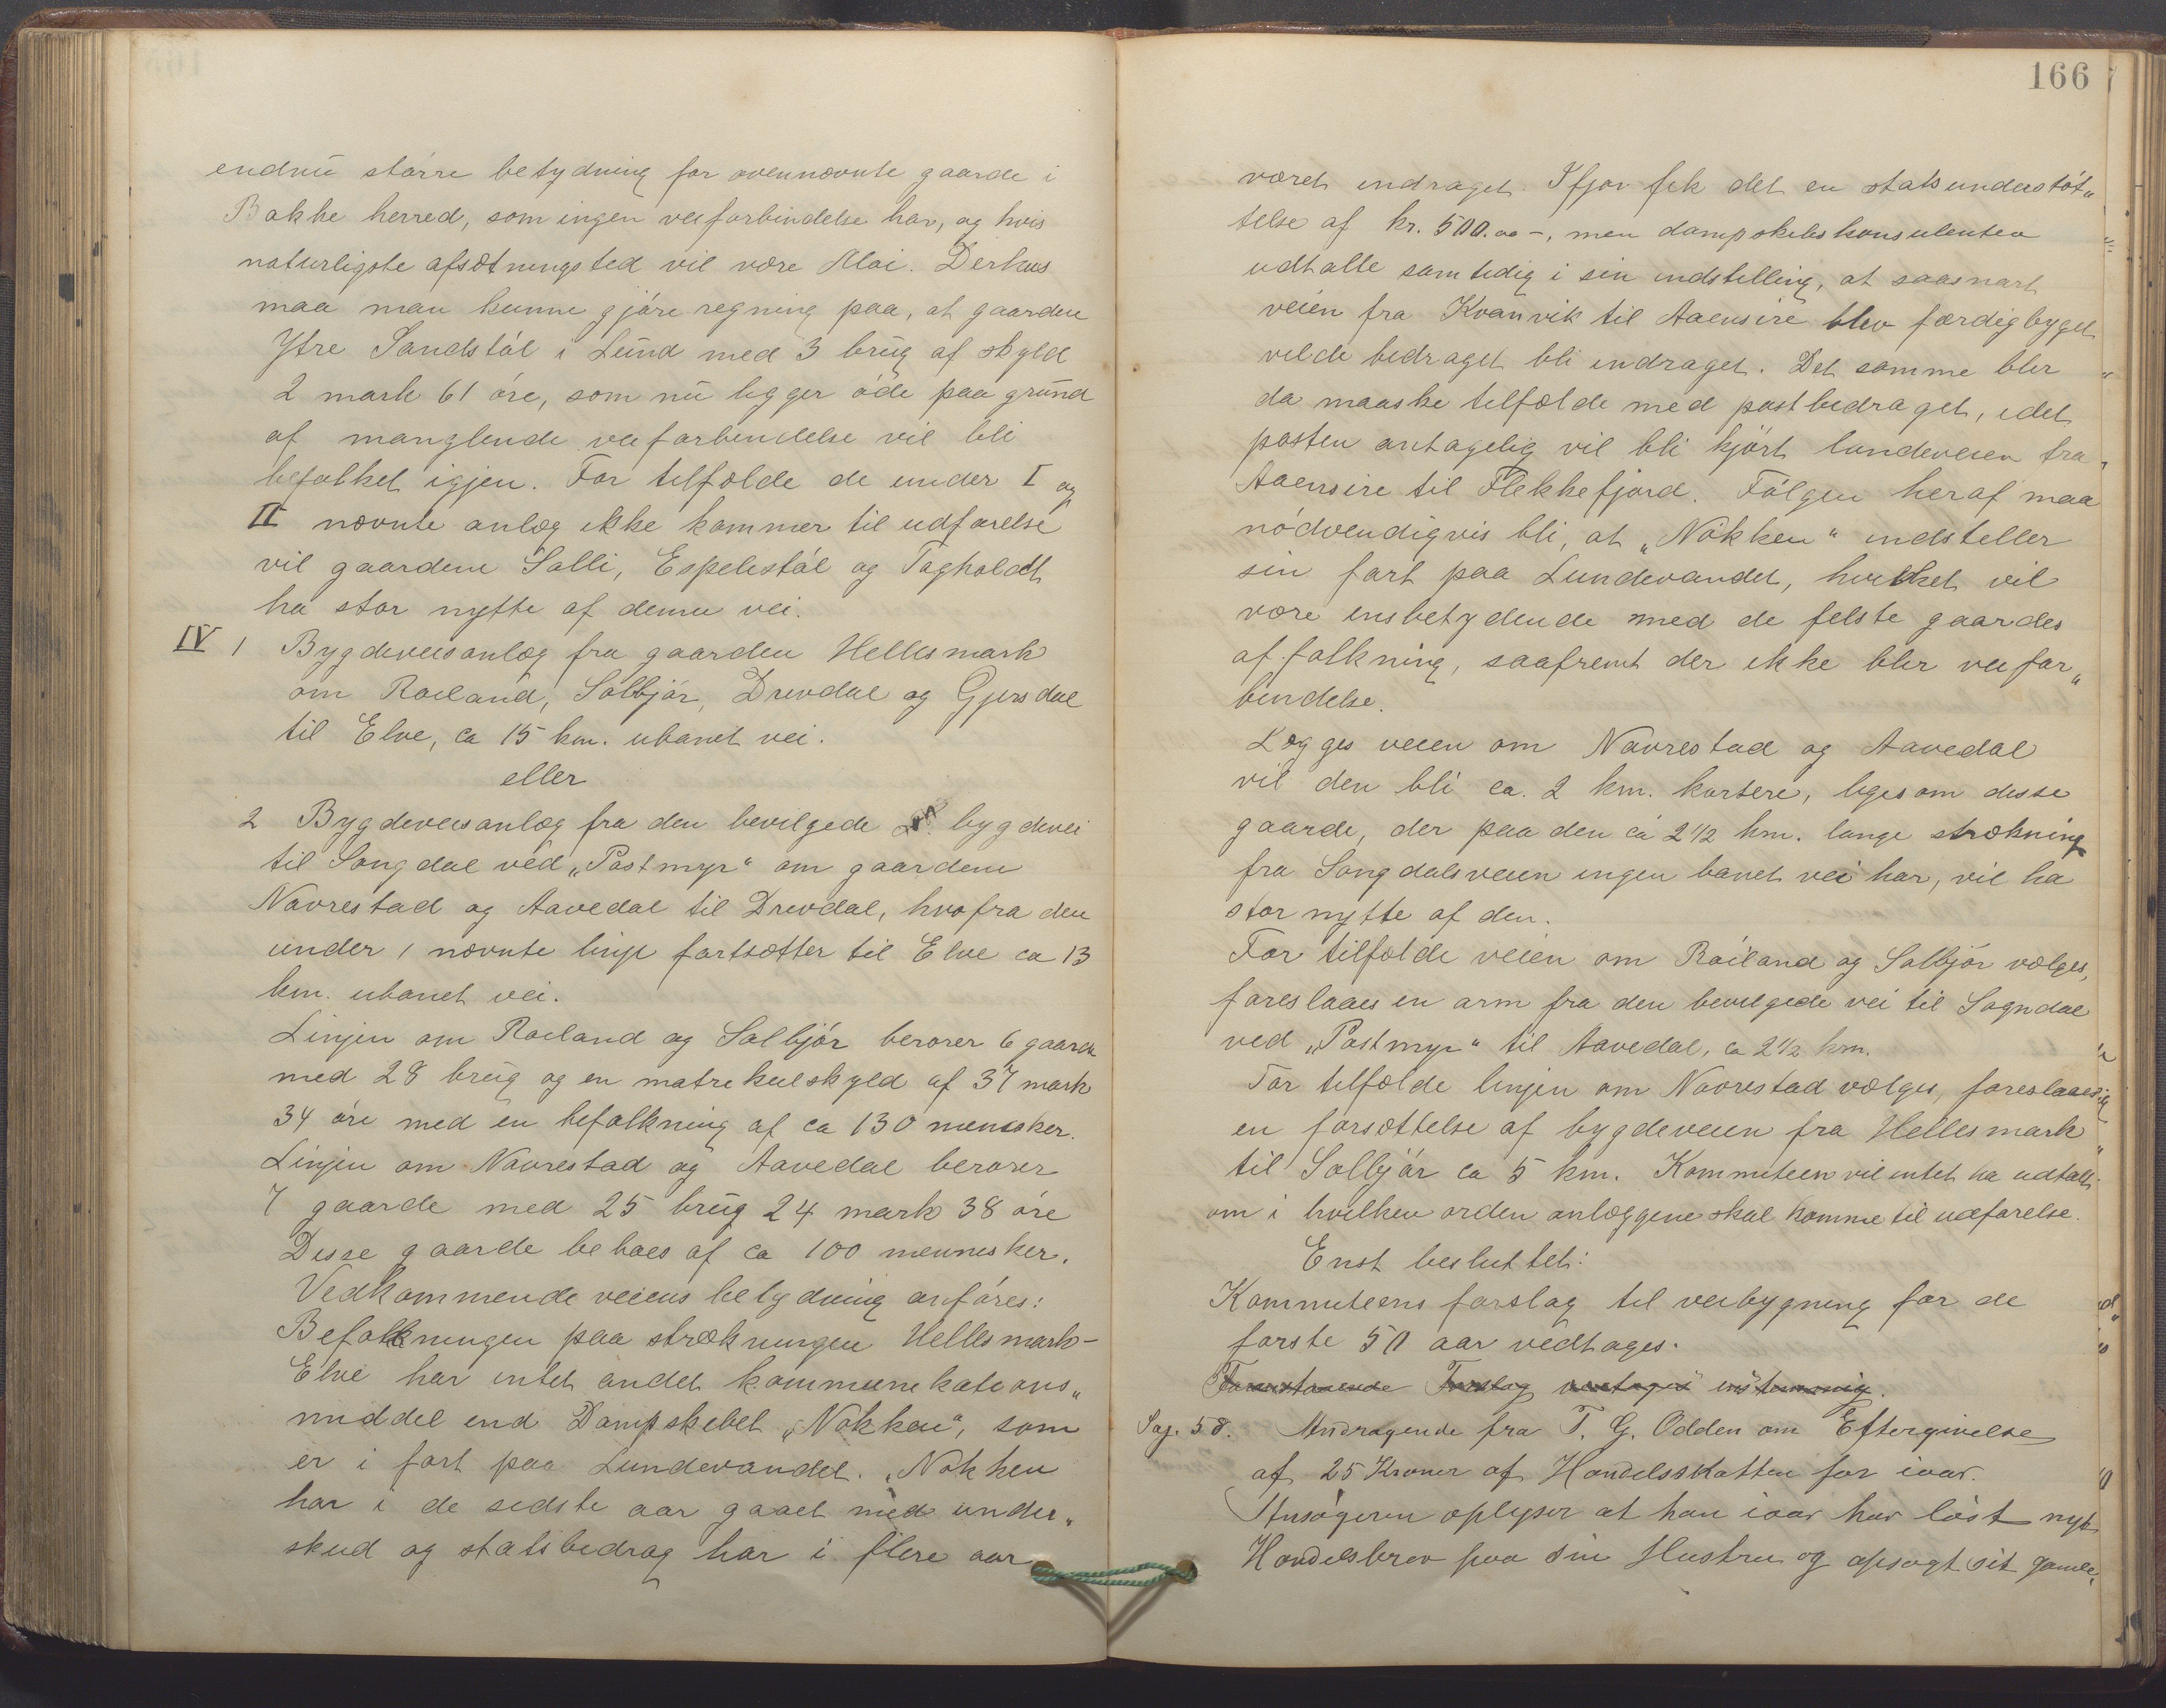 endnu større betydning for ovennævnte gaarde i
Bakke herred, som ingen veiforbindelse har, og hvis
naturligste afsætningsted vil være Moi. Derhus
maa man kunne gjøre regning paa, at gaarden
Ytre Sandstøl i Lund med 3 brug af skyld
2 mark 61 øre, som nu ligger øde paa grund
af manglende veiforbindelse vil bli
befolket igjen. For tilfælde de under I og
II nævnte anlæg ikke kommer til udførelse
vil gaardene Salli, Espelistøl og Tagholdt
ha stor nytte af denne vei.
IV 1 Bygdeveisanlæg fra gaarden Hellesmark
om Røiland, Solbjør, Drevdal og Gjersdal
til Elve, ca 15 km. ubanet vei.
eller
2 Bygdeveisanlæg fra den bevilgede bygdevei
til Songdal ved „Postmyr" om gaardene
Navrestad og Aavedal til Drevdal, hvofra den
under 1 nævnte linje fortsætter til Elve ca 13
km. ubanet vei.
Linjen om Røiland og Solbjør berører 6 gaarde
med 28 brug og en matrikulskyld af 37 mark
34 øre med en befolkning af ca 130 mennsker.
Linjen om Navrestad og Aavedal berører
7 gaarde med 25 brug 24 mark 38 øre
Disse gaarde beboes af ca 100 mennesker.
Vedkommende veiens betydning anføres:
Befolkningen paa strækningen Hellesmark-
Elve har intet andet kommunikations„
middel end Dampskibet „Nøkken", som
er i fart paa Lundevandet. „Nøkken
har i de sidste aar gaaet med under„
skud og statsbidrag har i flere aar
166
været indraget. Ifjor fik det en statsunderstøt„
telse af kr. 500.00 –, men dampskibskonsulenten
udtalte samtidig i sin indstilling, at saasnart
veien fra Kvanvik til Aaensire blev færdigbyget
vilde bidraget bli indraget. Det samme blir
da maaske tilfælde med postbidraget, idet
posten antagelig vil bli kjørt landeveien fra
Aaensire til Flekkefjord. Følgen heraf maa
nødvendigvis bli, at „Nøkken" indstiller
sin fart paa Lundevandet, hvilket vil
være ensbetydende med de fleste gaardes
affolkning, saafremt der ikke blir veifor„
bindelse.
Lægges veien om Navrestad og Aavedal
vil den bli ca. 2 km. kortere, ligesom disse
gaarde, der paa den ca 2 1/2 km. lange strækning
fra Songdalsveien ingen banet vei har, vil ha
stor nytte af den.
For tilfælde veien om Røiland og Solbjør vælges,
foreslaaes en arm fra den bevilgede vei til Sogndal
ved „Postmyr" til Aavedal, ca 2 1/2 km.
For tilfælde linjen om Navrestad vælges, foreslaaes
en forsættelse af bygdeveien fra Hellesmark
til Solbjør ca 5 km. Kommiteen vil intet ha udtalt
om i hvilken orden anlæggene skal komme til udførelse.
Enst besluttet:
Kommiteens forslag til veibygning for de
første 50 aar vedtages.
Foranstaaende Forslag vedtages enstemmig.
Sag. 58. Andragende fra T. G. Odden om Eftergivelse
af 25 Kroner af Handelsskatten for iaar.
Ansøgeren oplyser at han iaar har løst nyt
Handelsbrev paa sin Hustru og opsagt sit gamle,